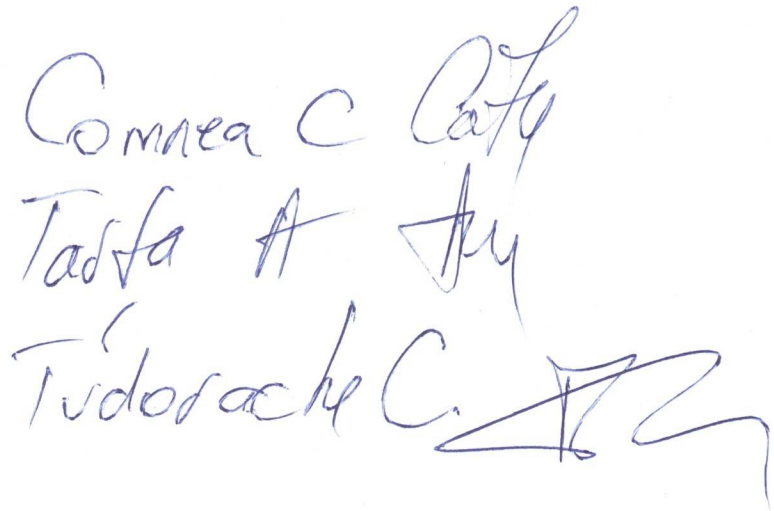 Comnea C Caty
Tarfa A
Tudorache C.